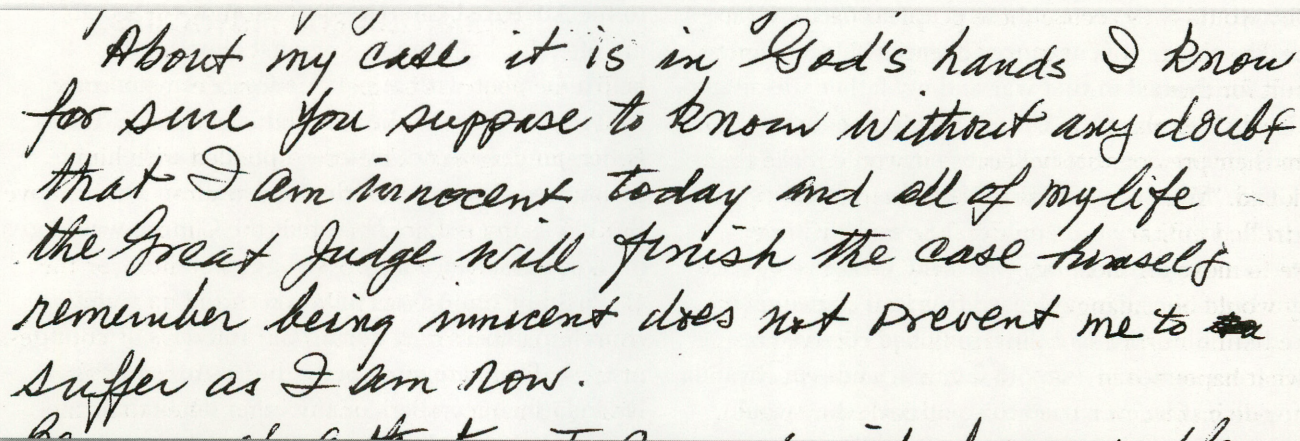 About my case it is in God's hands I know
for sure you suppose to know without any doubt
that I am innocent today and all of my life
the Great Judge will finish the case himself
remember being innicent does not prevent me to
suffer as I am now.